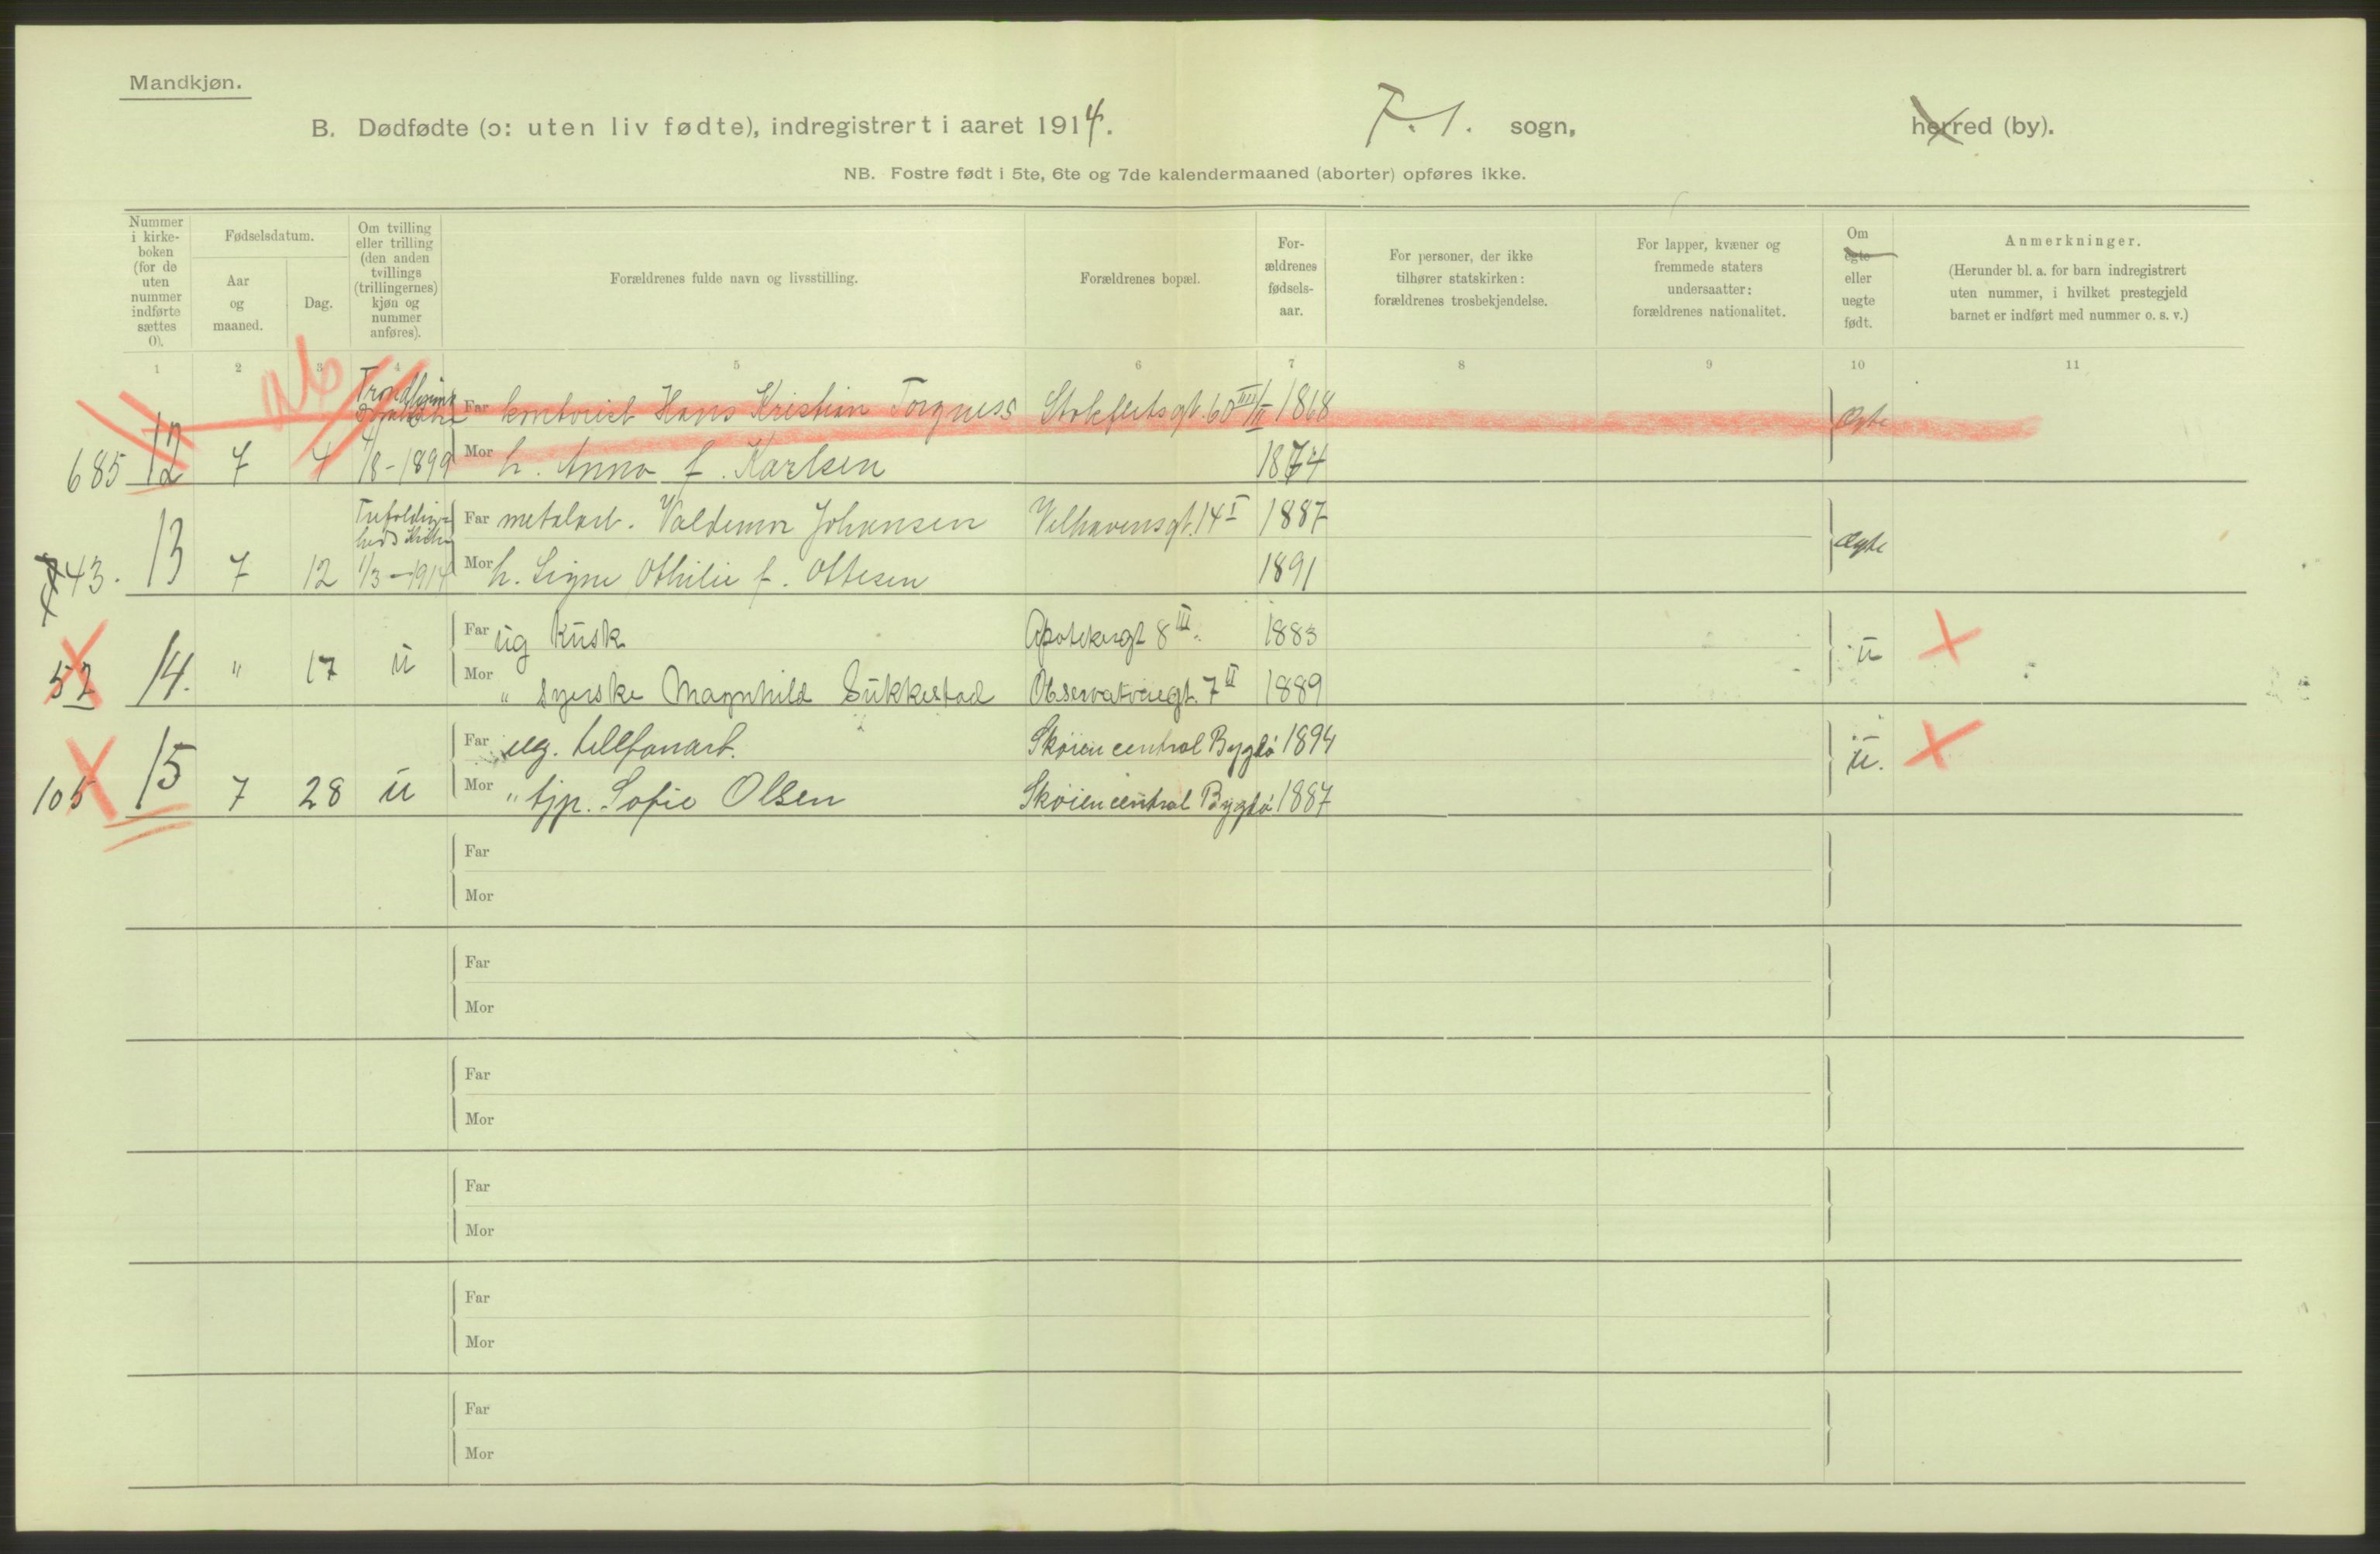 Mandkjøn.
B. Dødfødte (ɔ: uten liv fødte), indregistrert i aaret 1914. F. 1. sogn, herred (by).
NB. Fostre født i 5te, 6te og 7de kalendermaaned (aborter) opføres ikke.
Nummer i kirke-boken (for de uten nummer indførte sættes 0).
Fødselsdatum.
Aar og maaned.
Dag.
Om tvilling eller trilling (den anden tvillings (trillingernes) kjøn og nummer anføres).
Forældrenes fulde navn og livsstilling.
Forældrenes bopæl.
For-ældrenes fødsels-aar.
For personer, der ikke tilhører statskirken: forældrenes trosbekjendelse.
For lapper, kvæner og fremmede staters undersaatter: forældrenes nationalitet.
Om egte eller uegte født.
Anmerkninger.
(Herunder bl. a. for barn indregistrert uten nummer, i hvilket prestegjeld barnet er indført med nummer o. s. v.)
1 2 3 4 5 6 7 8 9 10 11
Far kontorist Hans Kristian Torgness Stokfletsgt. 60 III/II 1868 Ægte
685 12 7 4 1/8-1899 Mor h. Anna f. Karlsen 1874
Trefoldig-heds kirke Far metalarb. Valdemar Johansen Velhavensgt. 14 I 1887 ægte
743. 13 7 12 1/3-1914 Mor h. Signe Othilie f. Ottesen 1891
Far ug Kusk Apotekergt 8 III. 1883
52 14. " 17 u Mor " syerske Magnhild Sukkestad Observatoriegt. 7 II 1889 u
Far ug. telefonarb. Skøien central Bygdø 1894
105 15 7 28 u Mor " tjp. Sofie Olsen Skøien central Bygdø 1887 u.
Far
Mor
Far
Mor
Far
Mor
Far
Mor
Far
Mor
Far
Mor